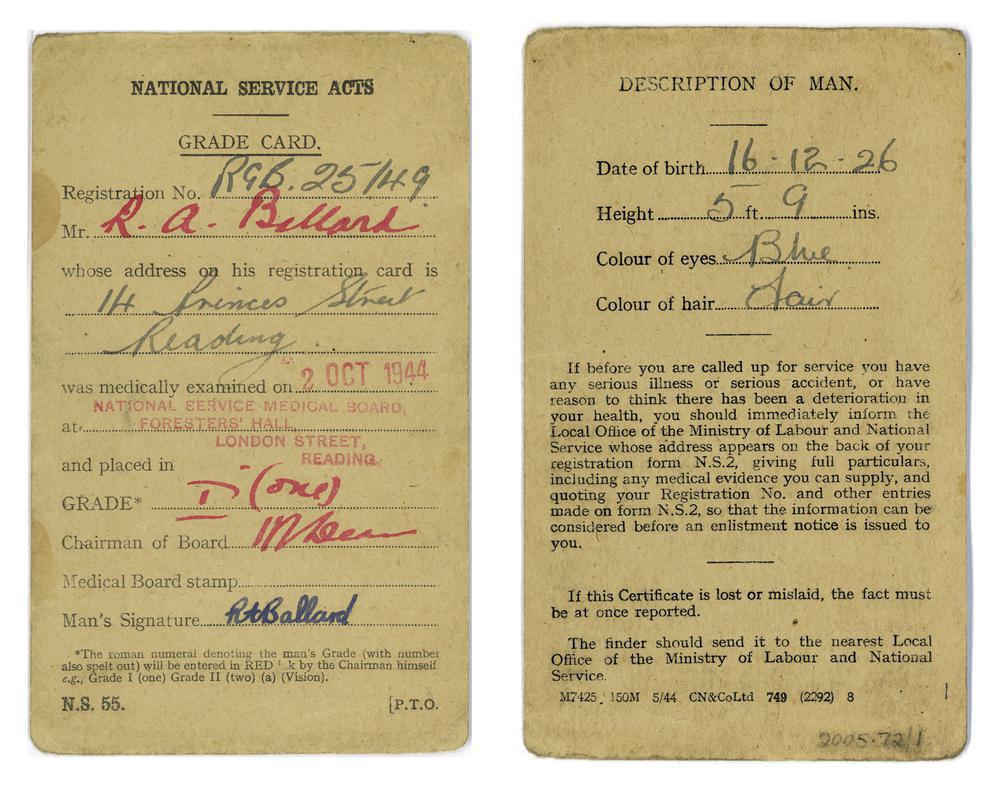 NATIONAL SERVICE ACTS
GRADE CARD.
Registration No. RGB. 25/49
Mr. R. A. Ballard
whose address on his registration card is
14 Princes Street
Reading
was medically examined on 2 OCT 1944
NATIONAL SERVICE MEDICAL BOARD,
at FORESTERS' HALL,
LONDON STREET,
and placed in READING.
GRADE* I (one)
Chairman of Board
Medical Board stamp
Man's Signature RABallard
*The roman numeral denoting the man's Grade (with number
also spelt out) will be entered in RED by the Chairman himself
e.g., Grade I (one) Grade II (two) (a) (Vision).
N.S. 55. [P.T.O.
DESCRIPTION OF MAN.
Date of birth 16-12-26
Height 5 ft. 9 ins.
Colour of eyes Blue
Colour of hair Fair
If before you are called up for service you have
any serious illness or serious accident, or have
reason to think there has been a deterioration in
your health, you should immediately inform the
Local Office of the Ministry of Labour and National
Service whose address appears on the back of your
registration form N.S.2, giving full particulars,
including any medical evidence you can supply, and
quoting your Registration No. and other entries
made on form N.S.2, so that the information can be
considered before an enlistment notice is issued to
you.
If this Certificate is lost or mislaid, the fact must
be at once reported.
The finder should send it to the nearest Local
Office of the Ministry of Labour and National
Service.
M7425 150M 5/44 CN&CoLtd 749 (2292) 8
2005.72/1